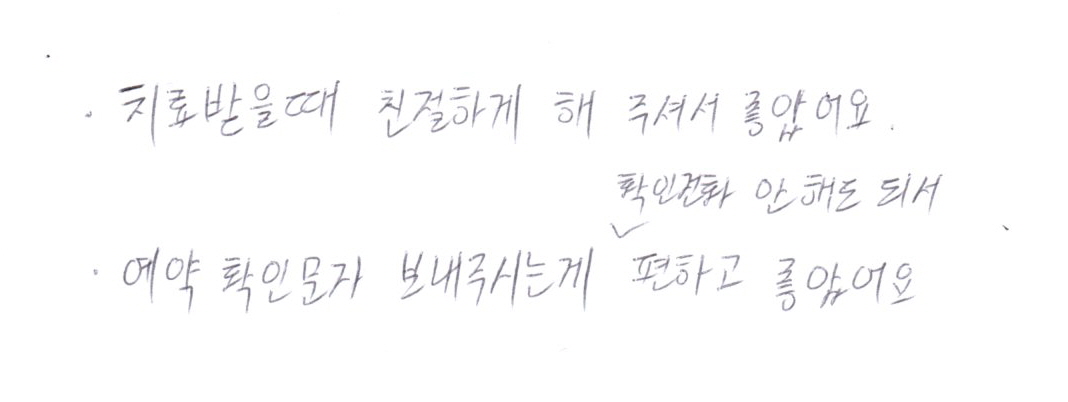 · 치료받을때 친절하게 해 주셔서 좋았어요.
확인전화 안해도 되서
· 예약 확인문자 보내주시는게 편하고 좋았어요